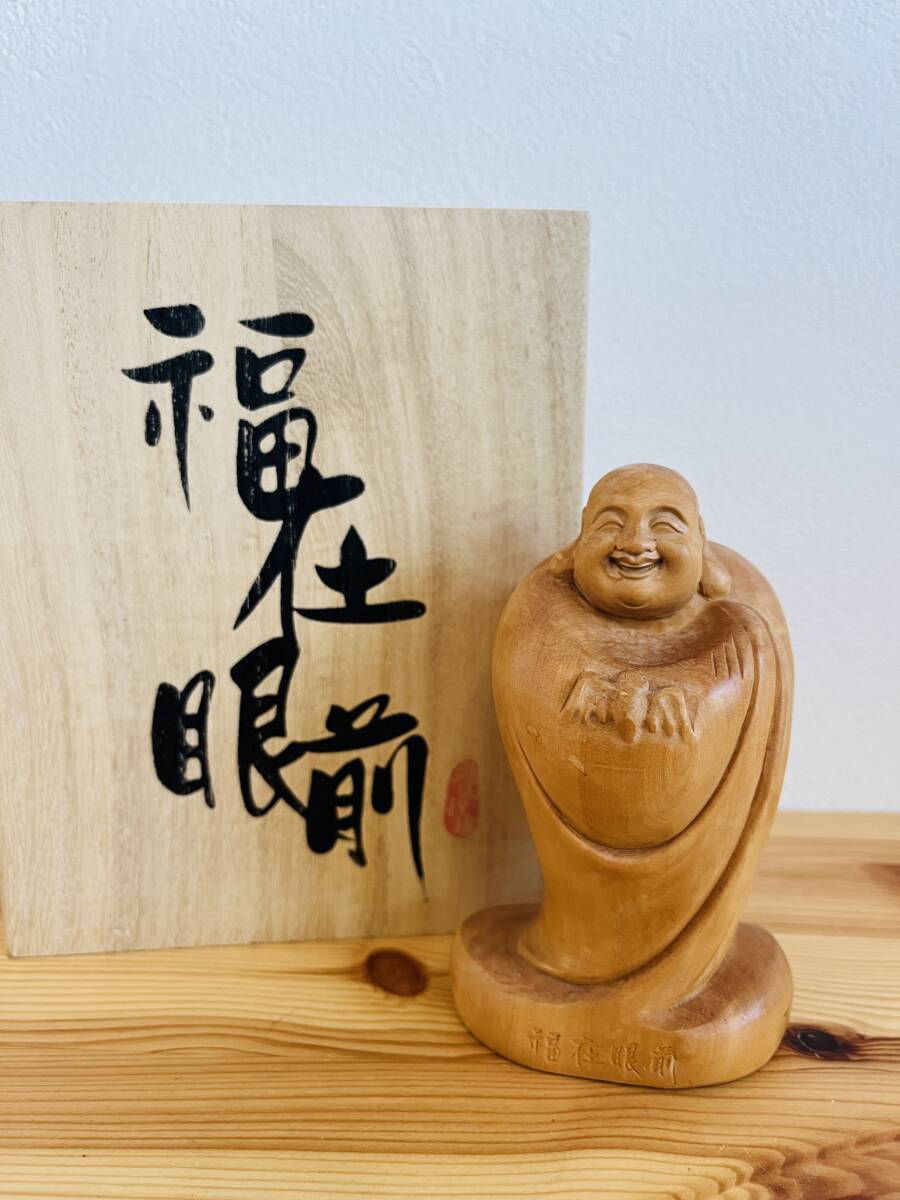 福在
眼前
福在眼前